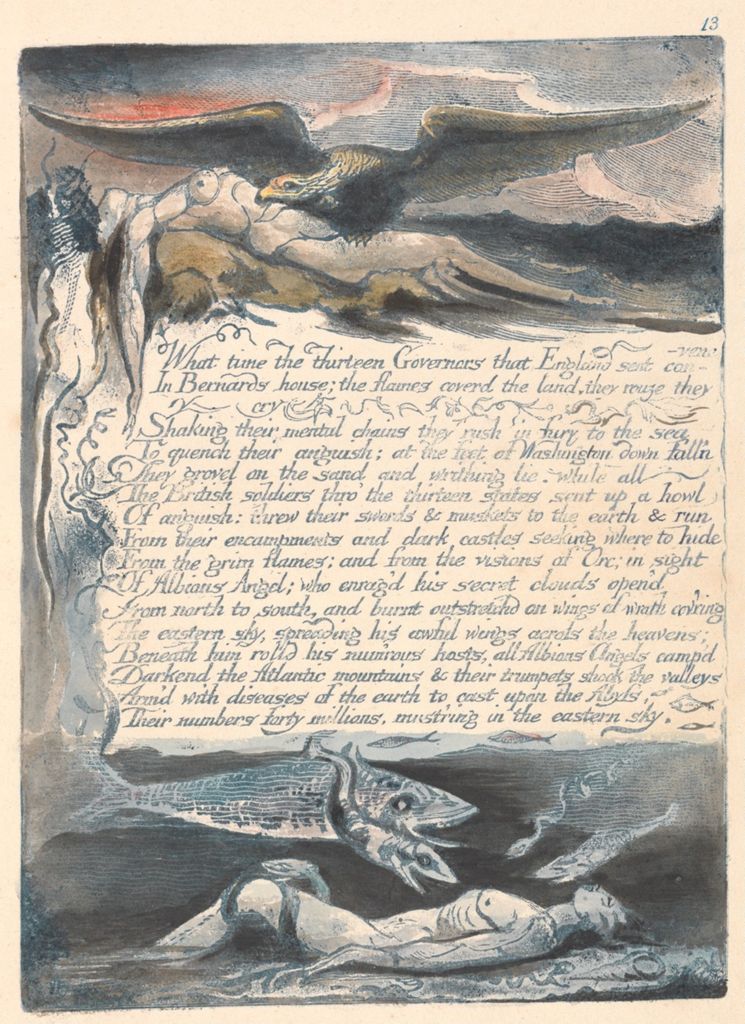 13
What time the thirteen Governors that England sent con-
-vene
In Bernards house; the flames coverd the land, they rouze they
cry
Shaking their mental chains they rush in fury to the sea
To quench their anguish; at the feet of Washington down fall'n
They grovel on the sand and writhing lie. while all
The British soldiers thro the thirteen states sent up a howl
Of anguish: threw their swords & muskets to the earth & run
From their encampments and dark castles seeking where to hide
From the grim flames; and from the visions of Orc; in sight
Of Albions Angel; who enrag'd his secret clouds open'd
From north to south, and burnt outstretchd on wings of wrath cov'ring
The eastern sky, spreading his awful wings across the heavens;
Beneath him rolld his num'rous hosts, all Albions Angels camp'd
Darkend the Atlantic mountains & their trumpets shook the valleys
Arm'd with diseases of the earth to cast upon the Abyss,
Their numbers forty millions, mustring in the eastern sky.